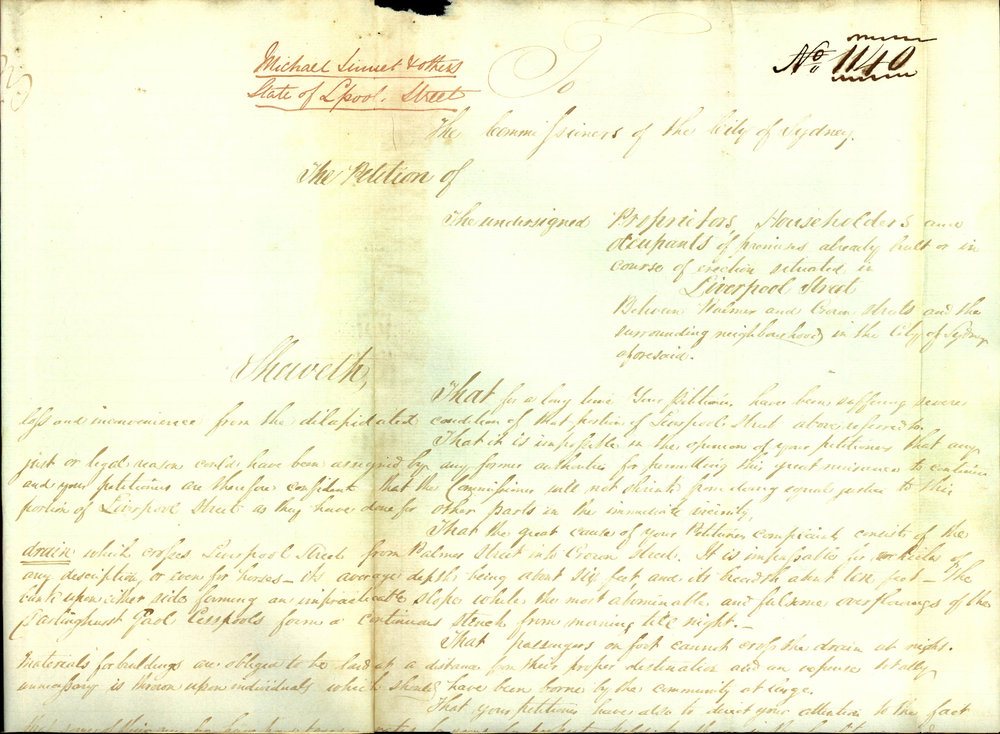 Michael Sinnet & others
State of Lpool. Street
No. 1140
To
The Commissioners of the City of Sydney.
The Petition of
The undersigned Proprietors, Householders and
occupants of premises already built or in
course of erection situated in
Liverpool Street
Between Palmer and Crown Streets and the
surrounding neighbourhood in the City of Sydney
aforesaid.
Sheweth,
That for a long time Your Petitioners have been suffering severe
loss and inconvenience from the dilapidated condition of that portion of Liverpool Street above referred to.
That it is impossible in the opinion of your petitioners that any
just or legal reason could have been assigned by any former authorities for permitting this great nuisance to continue
and your petitioners are therefore confident that the Commissioners will not from doing equal justice to this
portion of Liverpool Street as they have done for other parts in the immediate vicinity.
That the great cause of your Petitioners complaint consists of the
drain which crosses Liverpool Street from Palmer Street into Crown Street. It is impassable for vehicles of
any description, or even for horses – its average depth being about six feet and its breadth about ten feet – The
upon either side forming an impracticable slope while the most abominable and fulsome overflowings of the
Darlinghurst Gaol Cesspools form a continuous stench from morning till night. –
That passengers on foot cannot cross the drain at night.
Materials for buildings are obliged to be laid at a distance from their proper destination and an expense totally
unnecessary is thrown upon individuals which should have been borne by the community at large.
That your petitioners have also to direct your attention to the fact